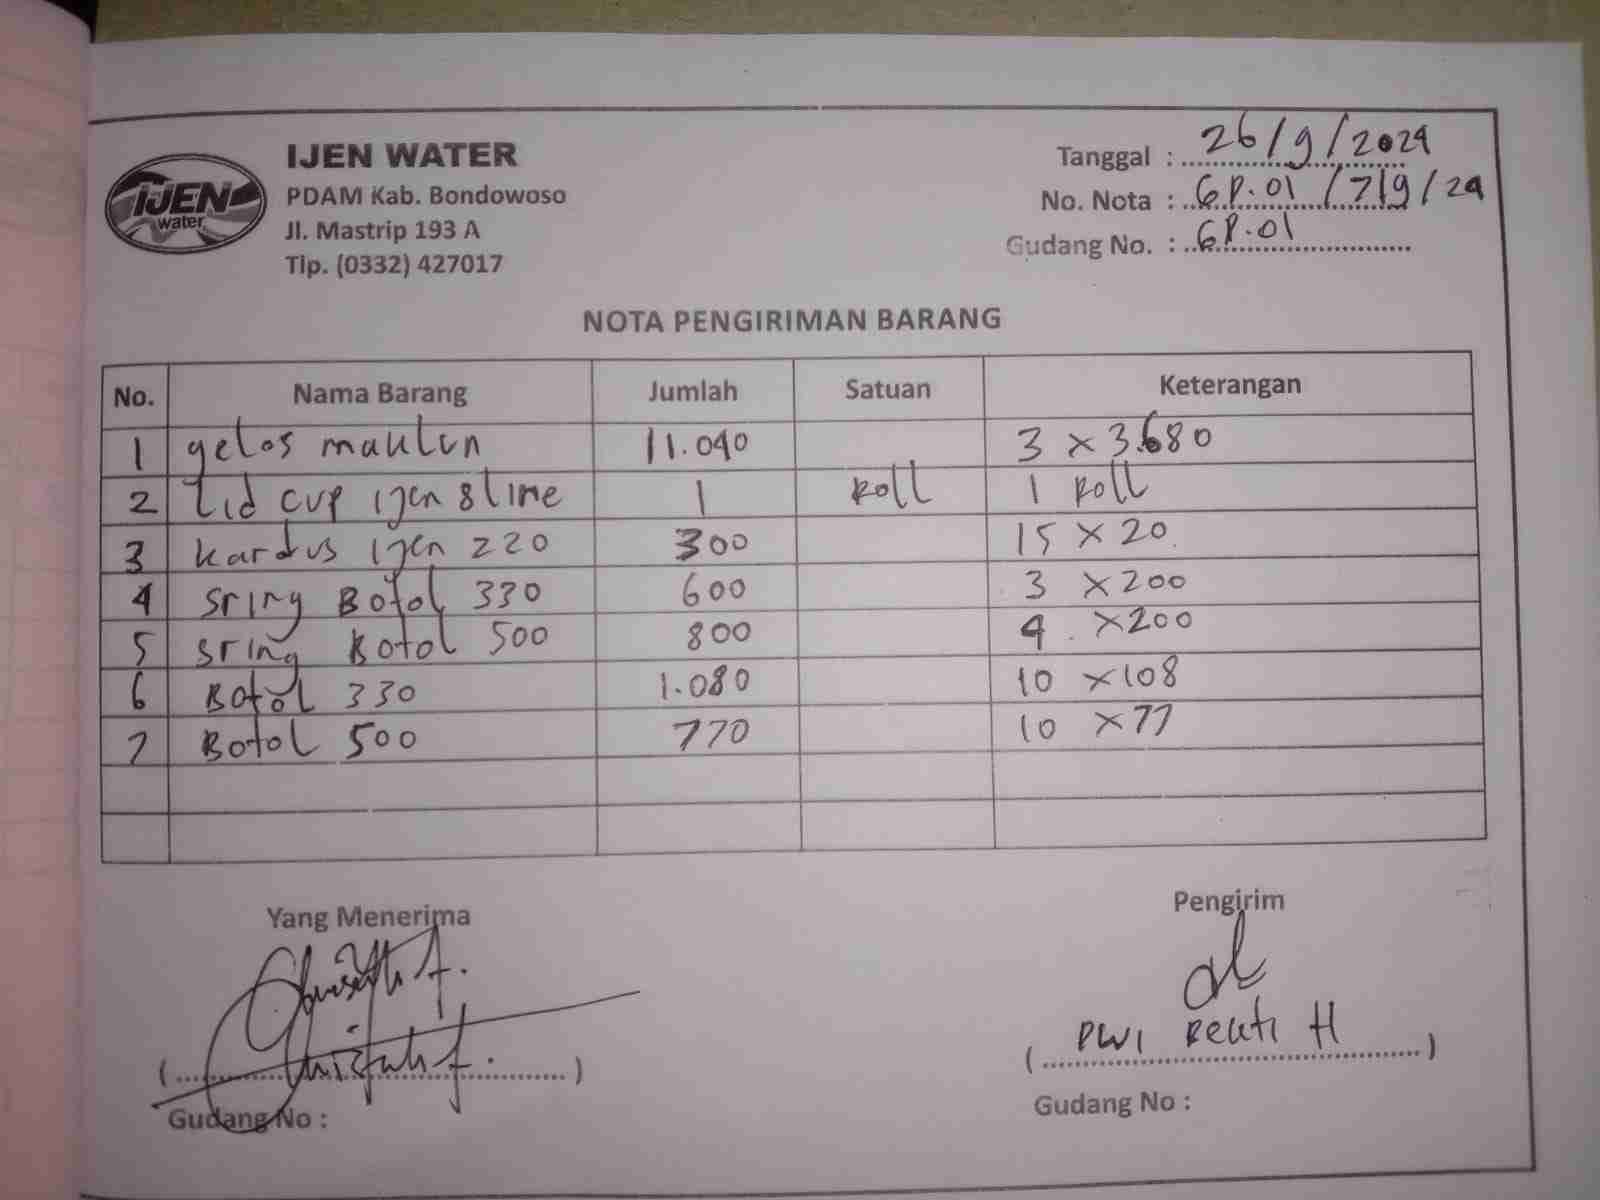 IJEN
water
IJEN WATER
PDAM Kab. Bondowoso
Jl. Mastrip 193 A
Tlp. (0332) 427017
Tanggal : 26/9/2024
No. Nota : GP.01 /7/9/24
Gudang No. : GP.01
NOTA PENGIRIMAN BARANG
No. Nama Barang Jumlah Satuan Keterangan
1 gelas maklun 11.040 3 x 3.680
2 Lid cup ijen 8 line 1 Roll 1 Roll
3 kardus ijen 220 300 15 x 20
4 sring Botol 330 600 3 x 200
5 sring Botol 500 800 4 x 200
6 Botol 330 1.080 10 x 108
7 Botol 500 770 10 x 77
Yang Menerima Pengirim
( ) ( DWI Bekti H )
Gudang No : Gudang No :